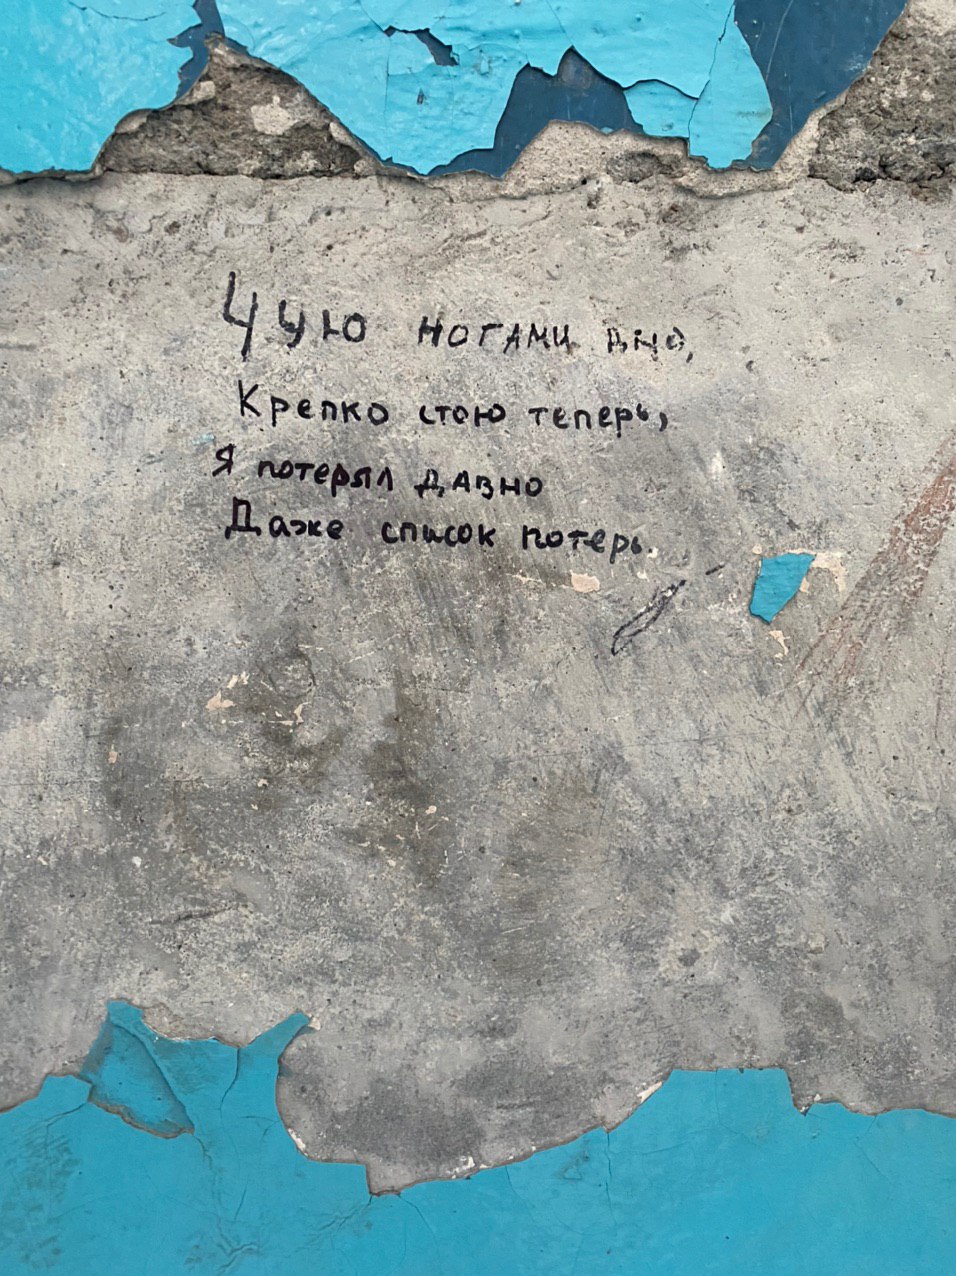 Чую ногами дно,
Крепко стою теперь,
Я потерял давно
Даже список потерь.